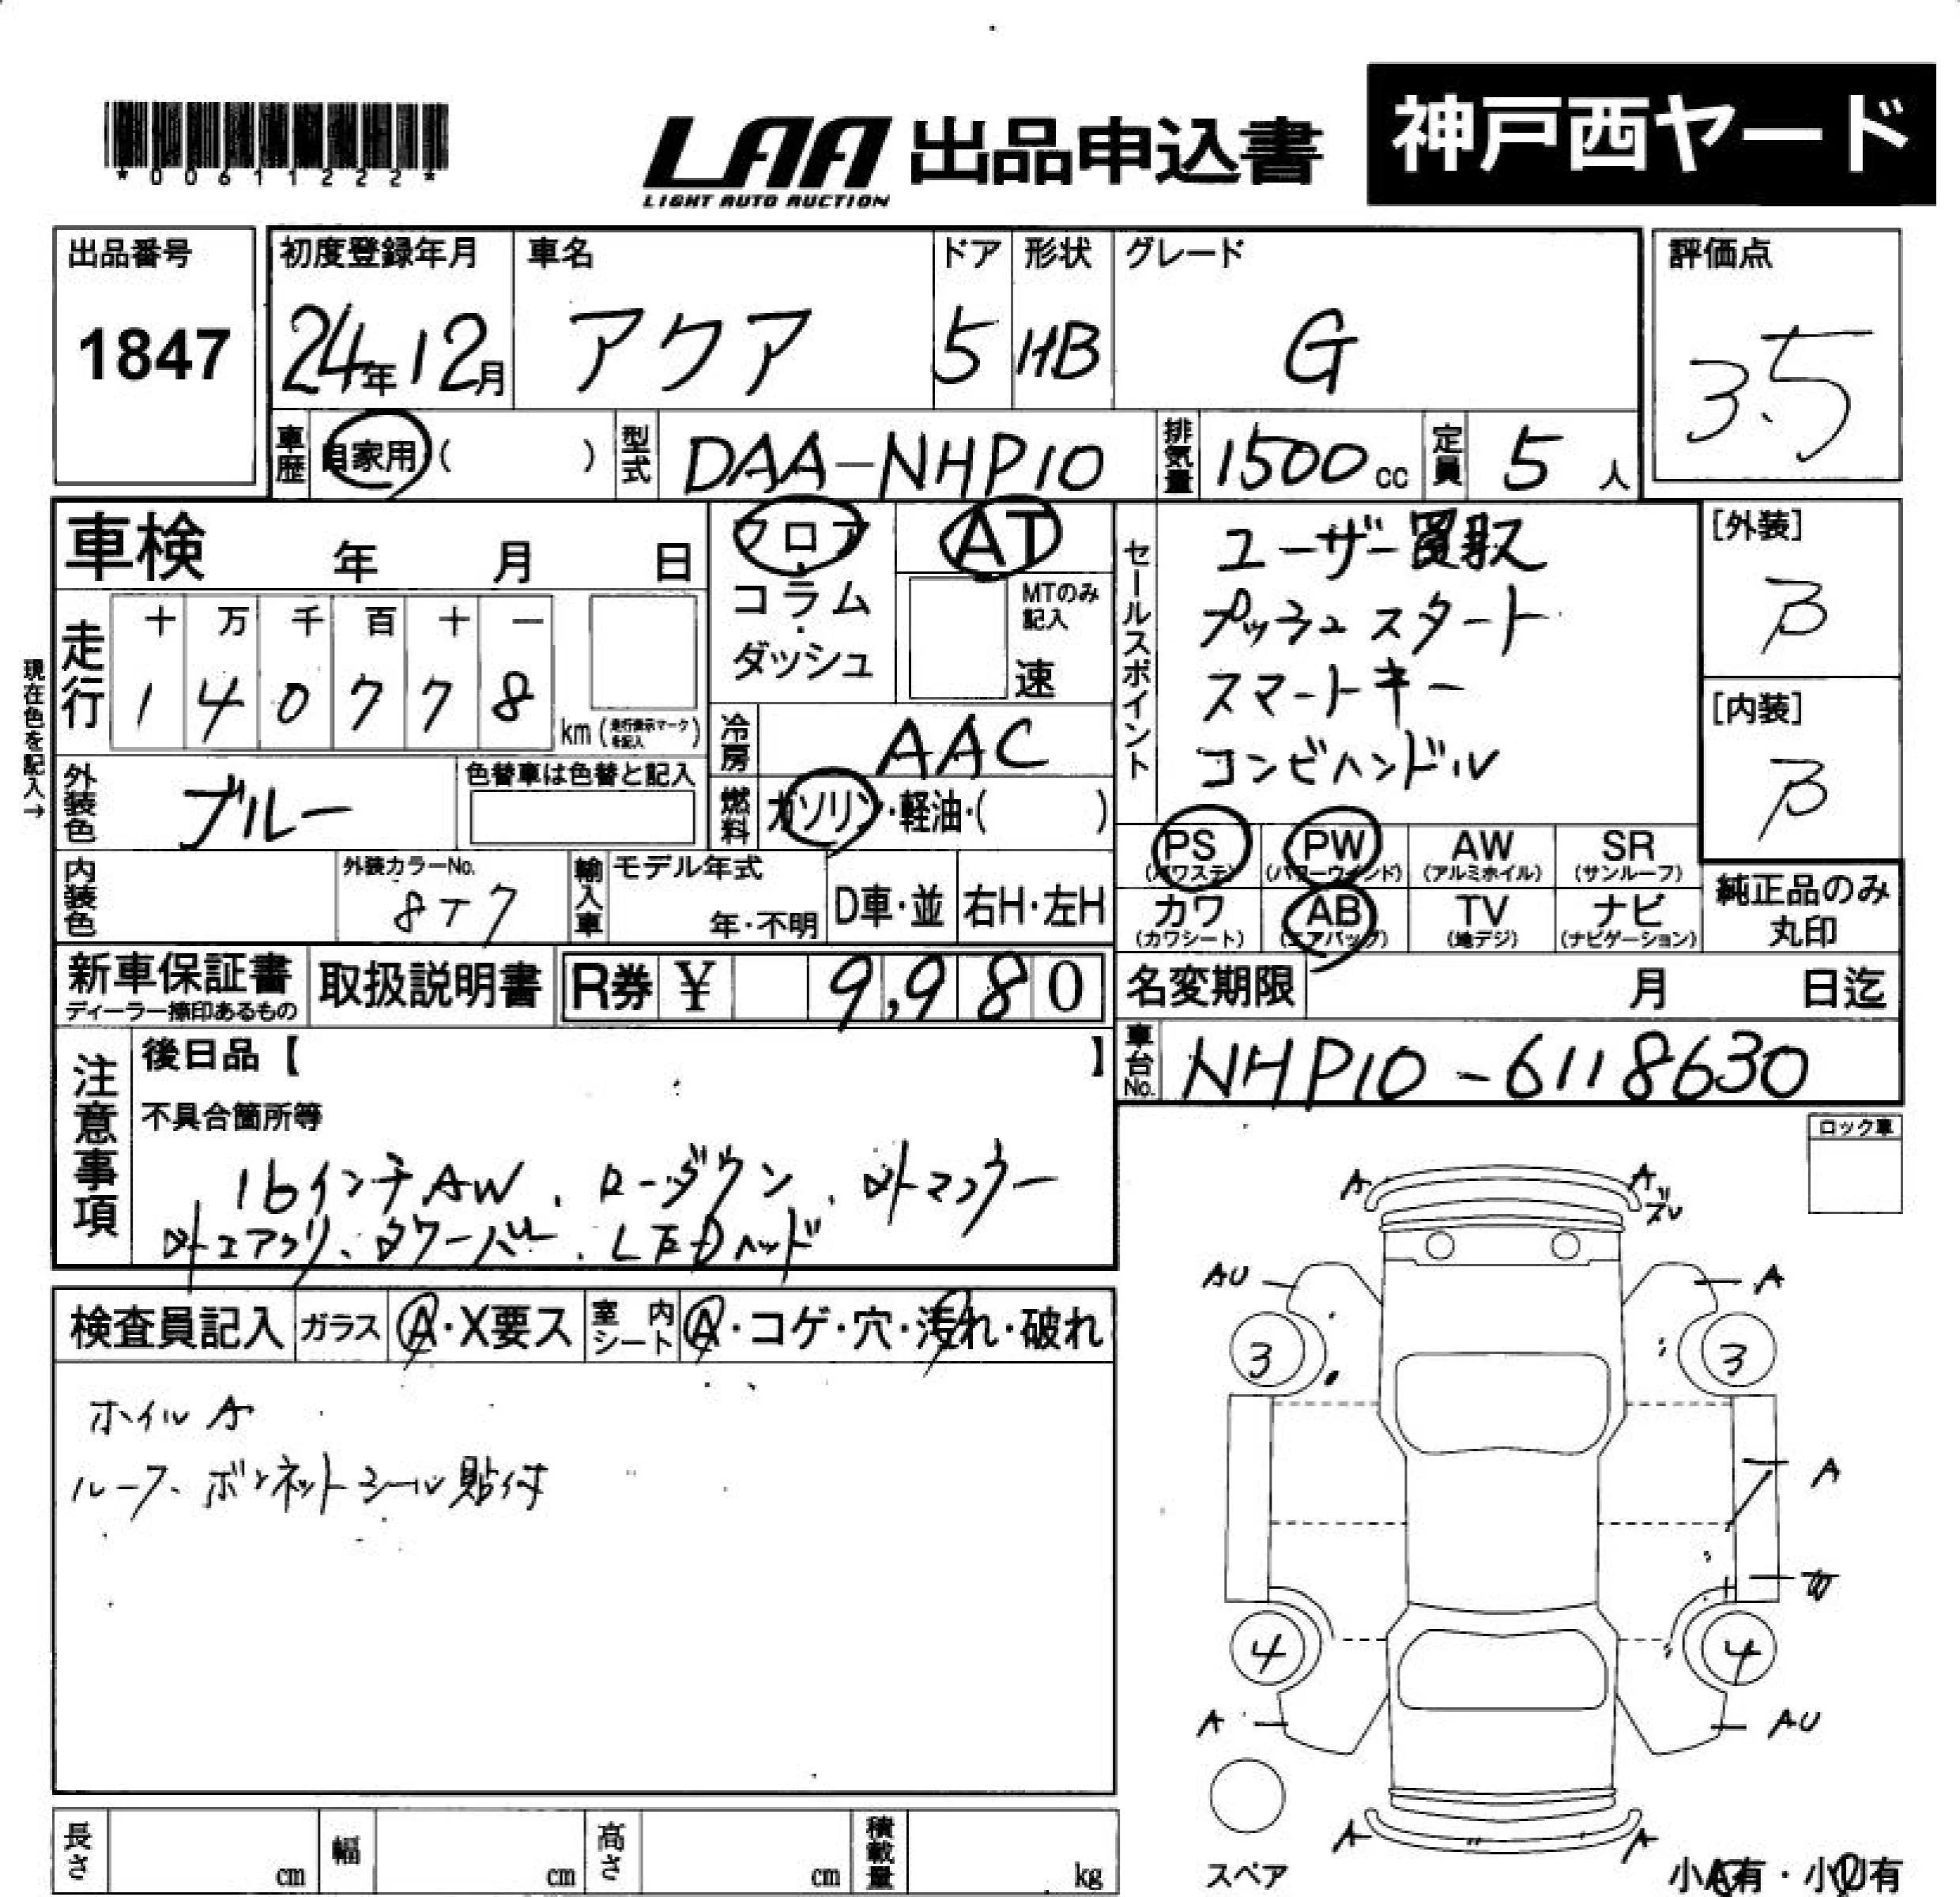 神戸西ヤード
*00611222*
LAA 出品申込書
LIGHT AUTO AUCTION
出品番号 初度登録年月 車名 ドア 形状 グレード 評価点
1847 24年12月 アクア 5 HB G 3.5
車歴 自家用 ( ) 型式 DAA-NHP10 排気量 1500cc 定員 5人
車検 年 月 日
フロア・コラム・ダッシュ
AT
MTのみ記入
速
走行
十 万 千 百 十 一
1 4 0 7 7 8
km (走行表示マークを記入)
現在色を記入→
冷房 AAC
外装色 ブルー 色替車は色替と記入
燃料 ガソリン・軽油・( )
内装色 外装カラーNo. 8T7
輸入車 モデル年式 年・不明 D車・並 右H・左H
セールスポイント
ユーザー買取
プッシュスタート
スマートキー
コンビハンドル
[外装]
B
[内装]
B
PS (パワステ) PW (パワーウインド) AW (アルミホイル) SR (サンルーフ)
カワ (カワシート) AB (エアバッグ) TV (地デジ) ナビ (ナビゲーション)
純正品のみ丸印
新車保証書 ディーラー捺印あるもの 取扱説明書 R券 ¥ 9,980
名変期限 月 日迄
車台No. NHP10-6118630
注意事項
後日品【 】
不具合箇所等
16インチAW、ローダウン、外マフラー
外エアクリ、タワーバー、LEDヘッド
検査員記入 ガラス A・X要ス 室内シート A・コゲ・穴・汚れ・破れ
ホイルA
ルーフ、ボンネットシール貼付
ロック車
A A
ズレ
AU A
3 3
A
4 4
A AU
A A
スペア
小A有・小U有
長さ cm 幅 cm 高さ cm 積載量 kg